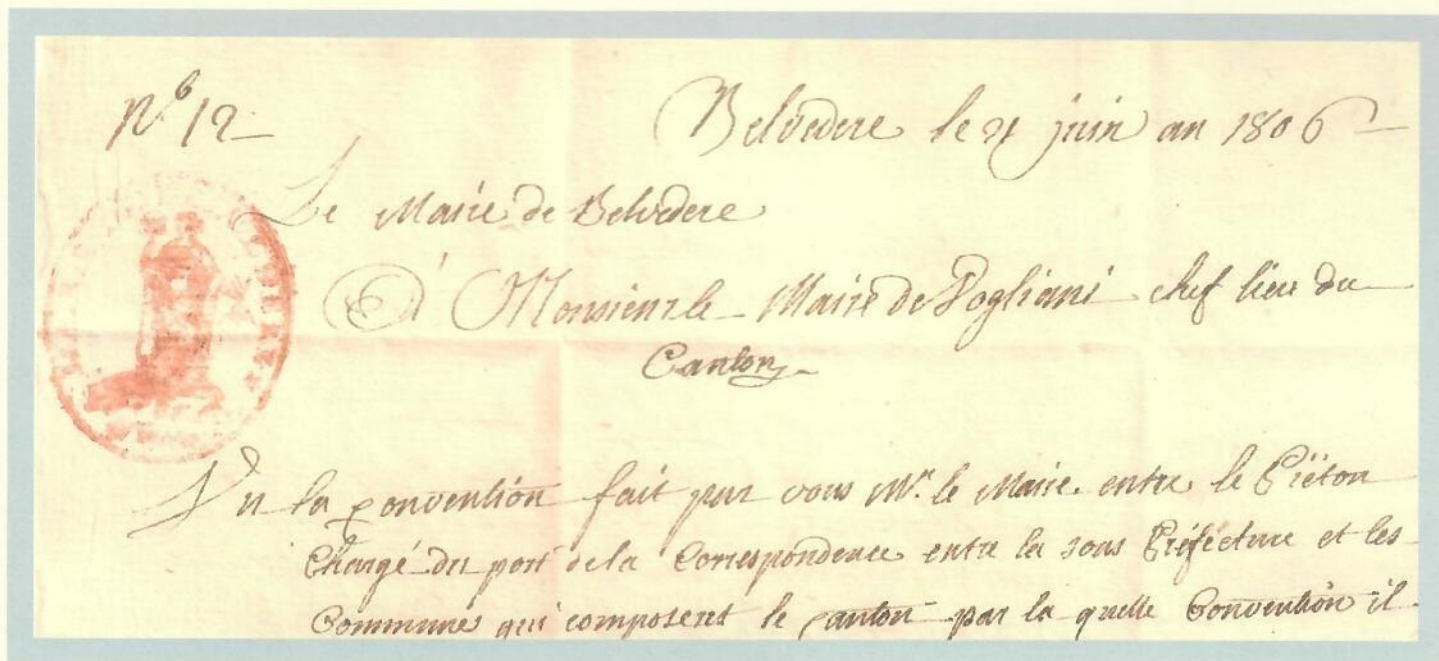 N.º 12
Belvedere le 21 juin an 1806
Le Maire de Belvedere
A Monsieur le Maire de Dogliani chef lieu du
Canton
Vu la Convention fait par vous Mr. le Maire entre le Piéton
Chargé du port de la Correspondence entre la sous Préfécture et les
Communes qui composent le canton par la quelle Convention il